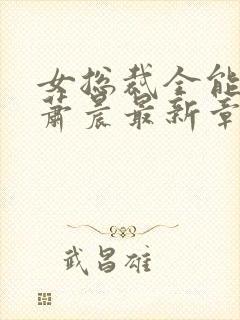 女总裁全能
萧晨最新章
武昌雄